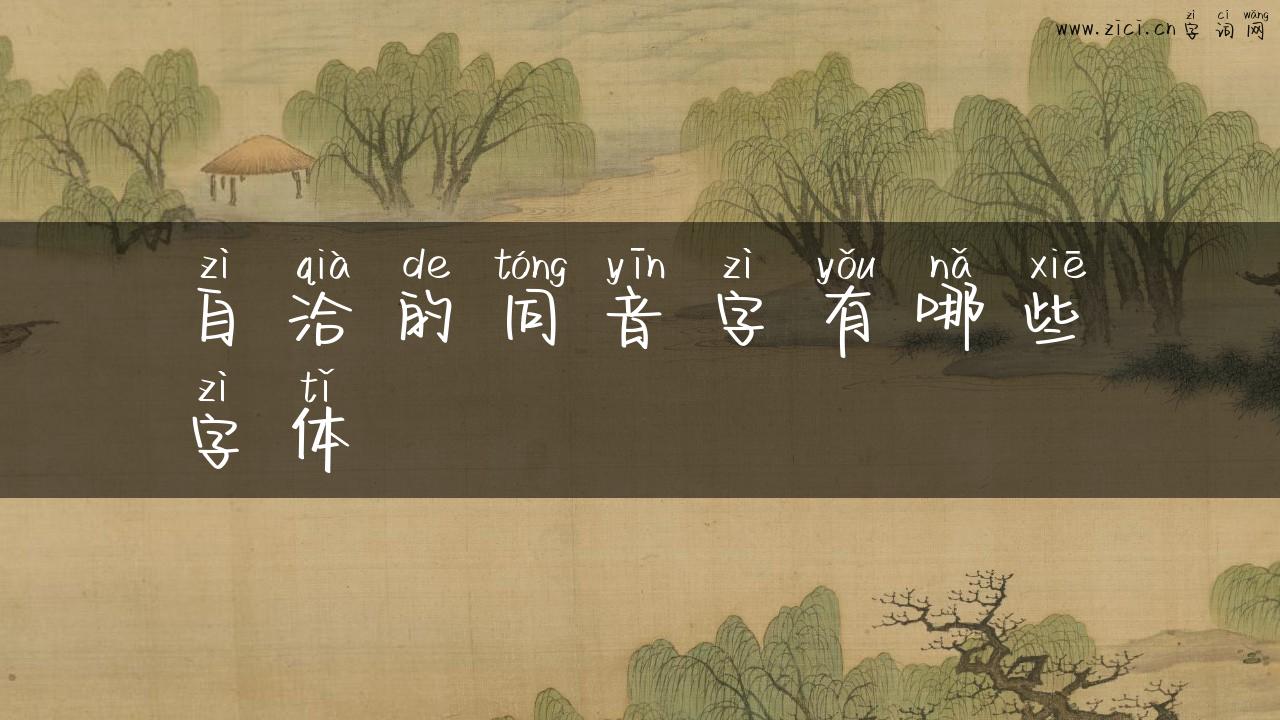 zì cí wǎng
www.zici.cn 字词网
zì qià de tóng yīn zì yǒu nǎ xiē
自洽的同音字有哪些
zì tǐ
字体